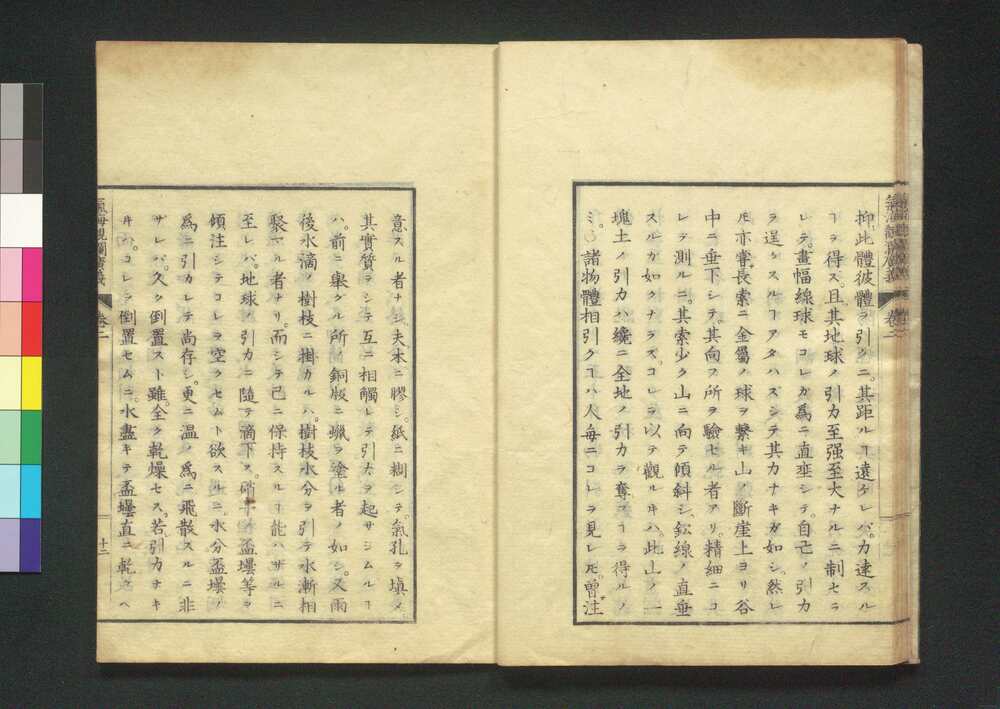 抑此體彼體ヲ引クニ。其距ルヿ遠ケレバ。力達スル
ヿヲ得ス。且其地球ノ引力至强至大ナルニ制セラ
レテ。畫幅線球モコレガ為ニ直垂シテ。自己ノ引力
ヲ逞クスルヿアタハズシテ其力ナキガ如シ。然レ
𪜈亦嘗長索ニ金屬ノ球ヲ繋キ山ノ斷崖上ヨリ谷
中ニ垂下シテ。其向フ所ヲ驗セル者アリ。精細ニコ
レヲ測ルニ。其索少ク山ニ向テ傾斜シ。鉛線ノ直垂
スルガ如クナラズ。コレヲ以テ觀ルキハ。此山ノ一
塊土ノ引力ハ纔ニ全地ノ引力ヲ奪フヿヲ得ルノ
ミ。諸物體相引クヿハ人每ニコレヲ見レ𪜈。曾注
意スル者ナシ。夫木ニ膠シ。紙ニ糊シテ。氣孔ヲ塡メ
其實質ヲシテ互ニ相觸レテ引力ヲ起サシムルヿ
ハ。前ニ擧グル所ノ銅版ニ蠟ヲ塗ル者ノ如シ。又雨
後水滴ノ樹枝ニ掛カルハ。樹枝水分ヲ引テ水漸相
聚マル者ナリ。而シテ己ニ保持スルヿ能ハザルニ
至レバ。地球ノ引力ニ隨テ滴下ス。硝子盃壜等ヲ
傾注シテコレヲ空クセムト欲スルニ。水分盃壜ノ
為ニ引カレテ尚存シ。更ニ溫ノ為ニ飛散スルニ非
サレバ。久ク倒置スト雖。全ク乾燥セス。若引力ナキ
キハ。コレヲ倒置セムニ。水盡キテ盃壜直ニ乾クヘ
氣海觀瀾廣義
卷二
十二